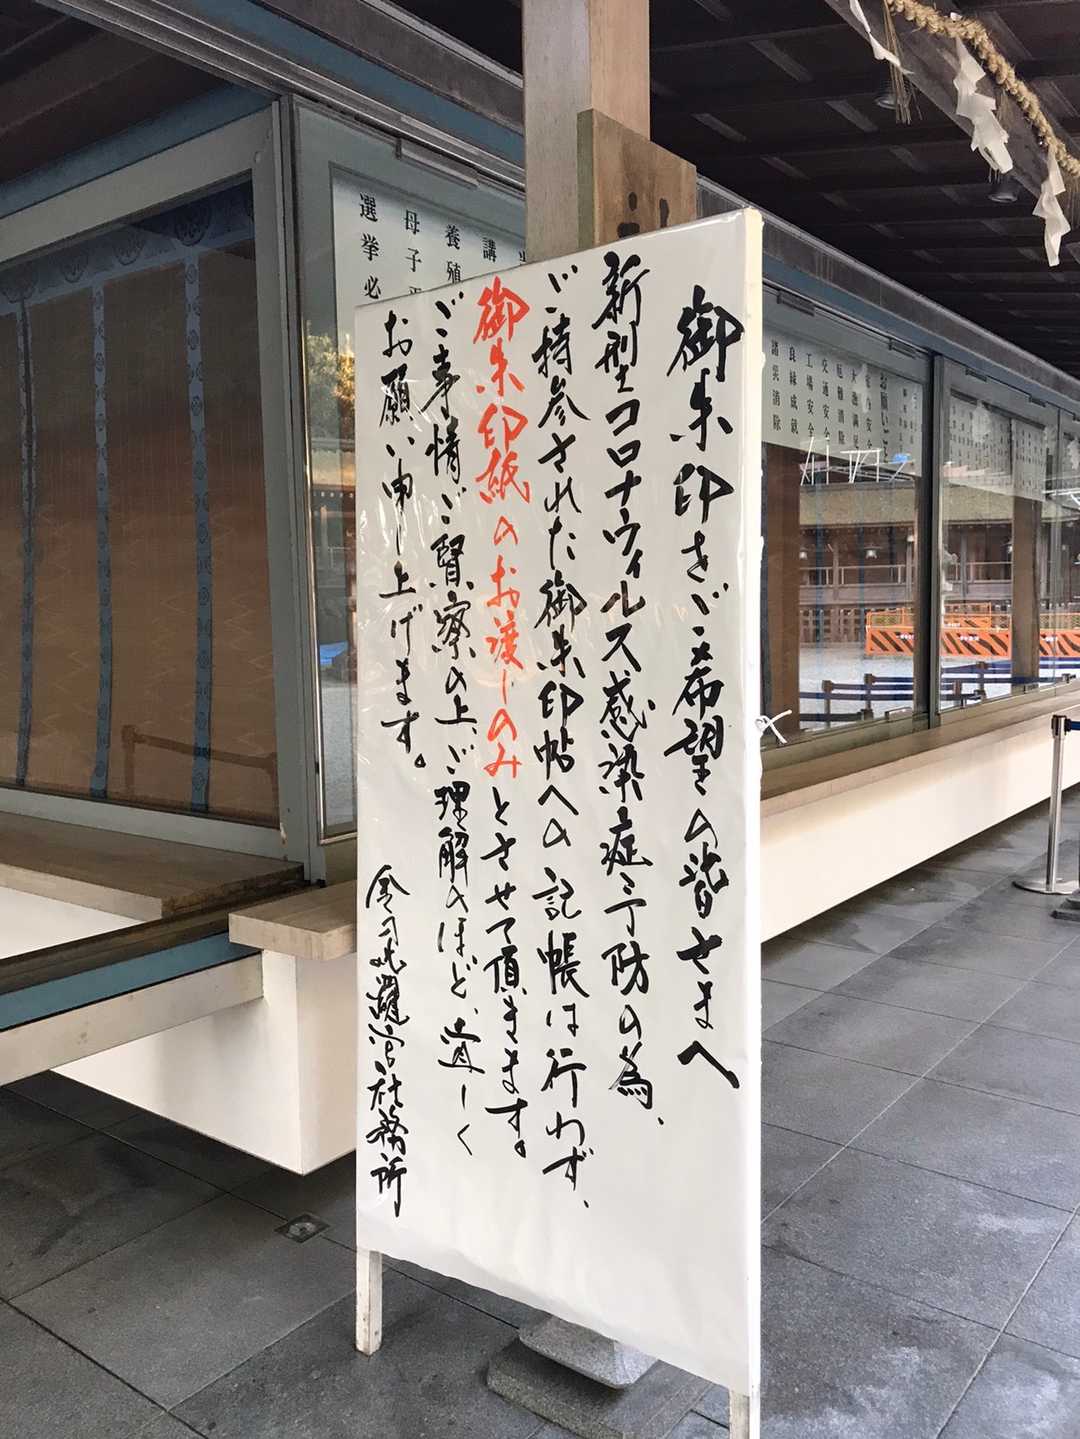 御朱印をご希望の皆さまへ
新型コロナウィルス感染症予防の為、
ご持参された御朱印帖への記帳は行わず、
御朱印紙のお渡しのみとさせて頂きます。
ご事情ご賢察の上、ご理解のほど、宜しく
お願い申し上げます。
社務所
講
養殖
母子
選挙必
交通安全
工場安全
良縁成就
諸災消除